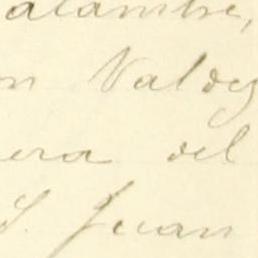 alambre,
n Valdez
era del
S. Juan